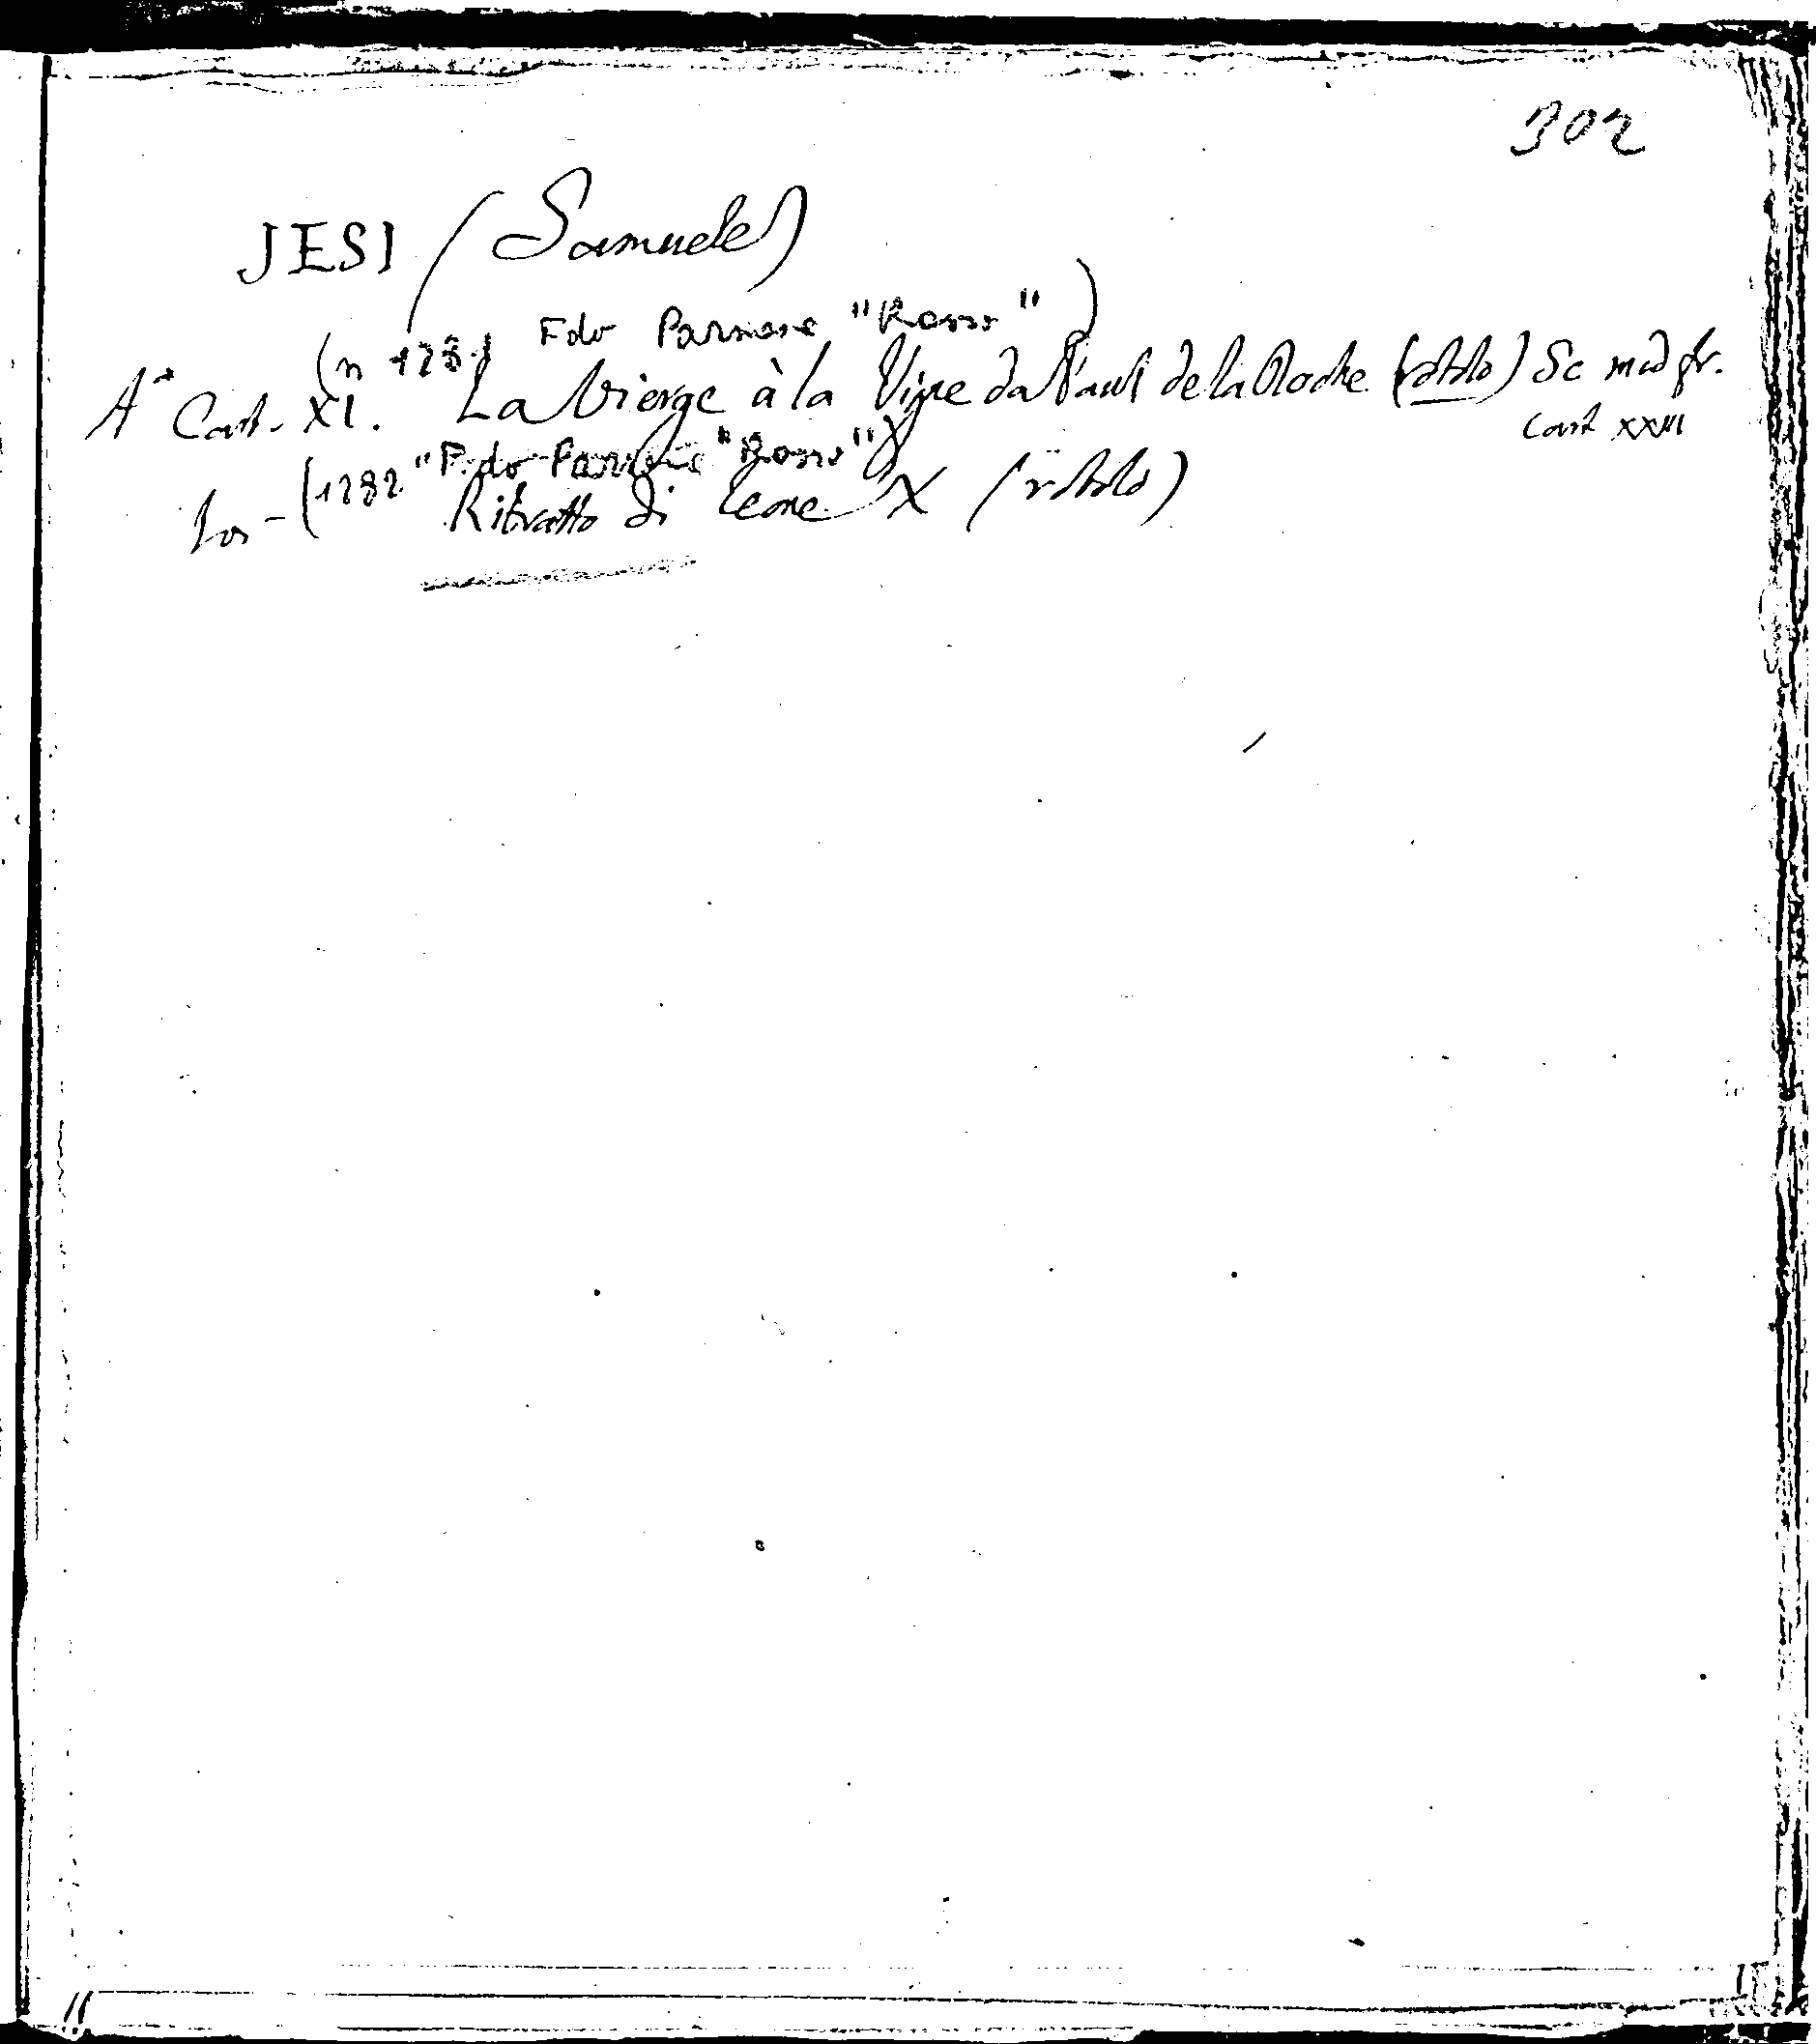 302
JESI (Samuele)
(n 1281 Fdo Parmense "Rosso")
A* Cart. XI. La Vierge à la Vigne da Paul de la Roche (rotolo) Sc mad gr.
Cart XXIII
(1282 "F.do Parmense "Rosso")
Ritratto di Leone X (rotolo)